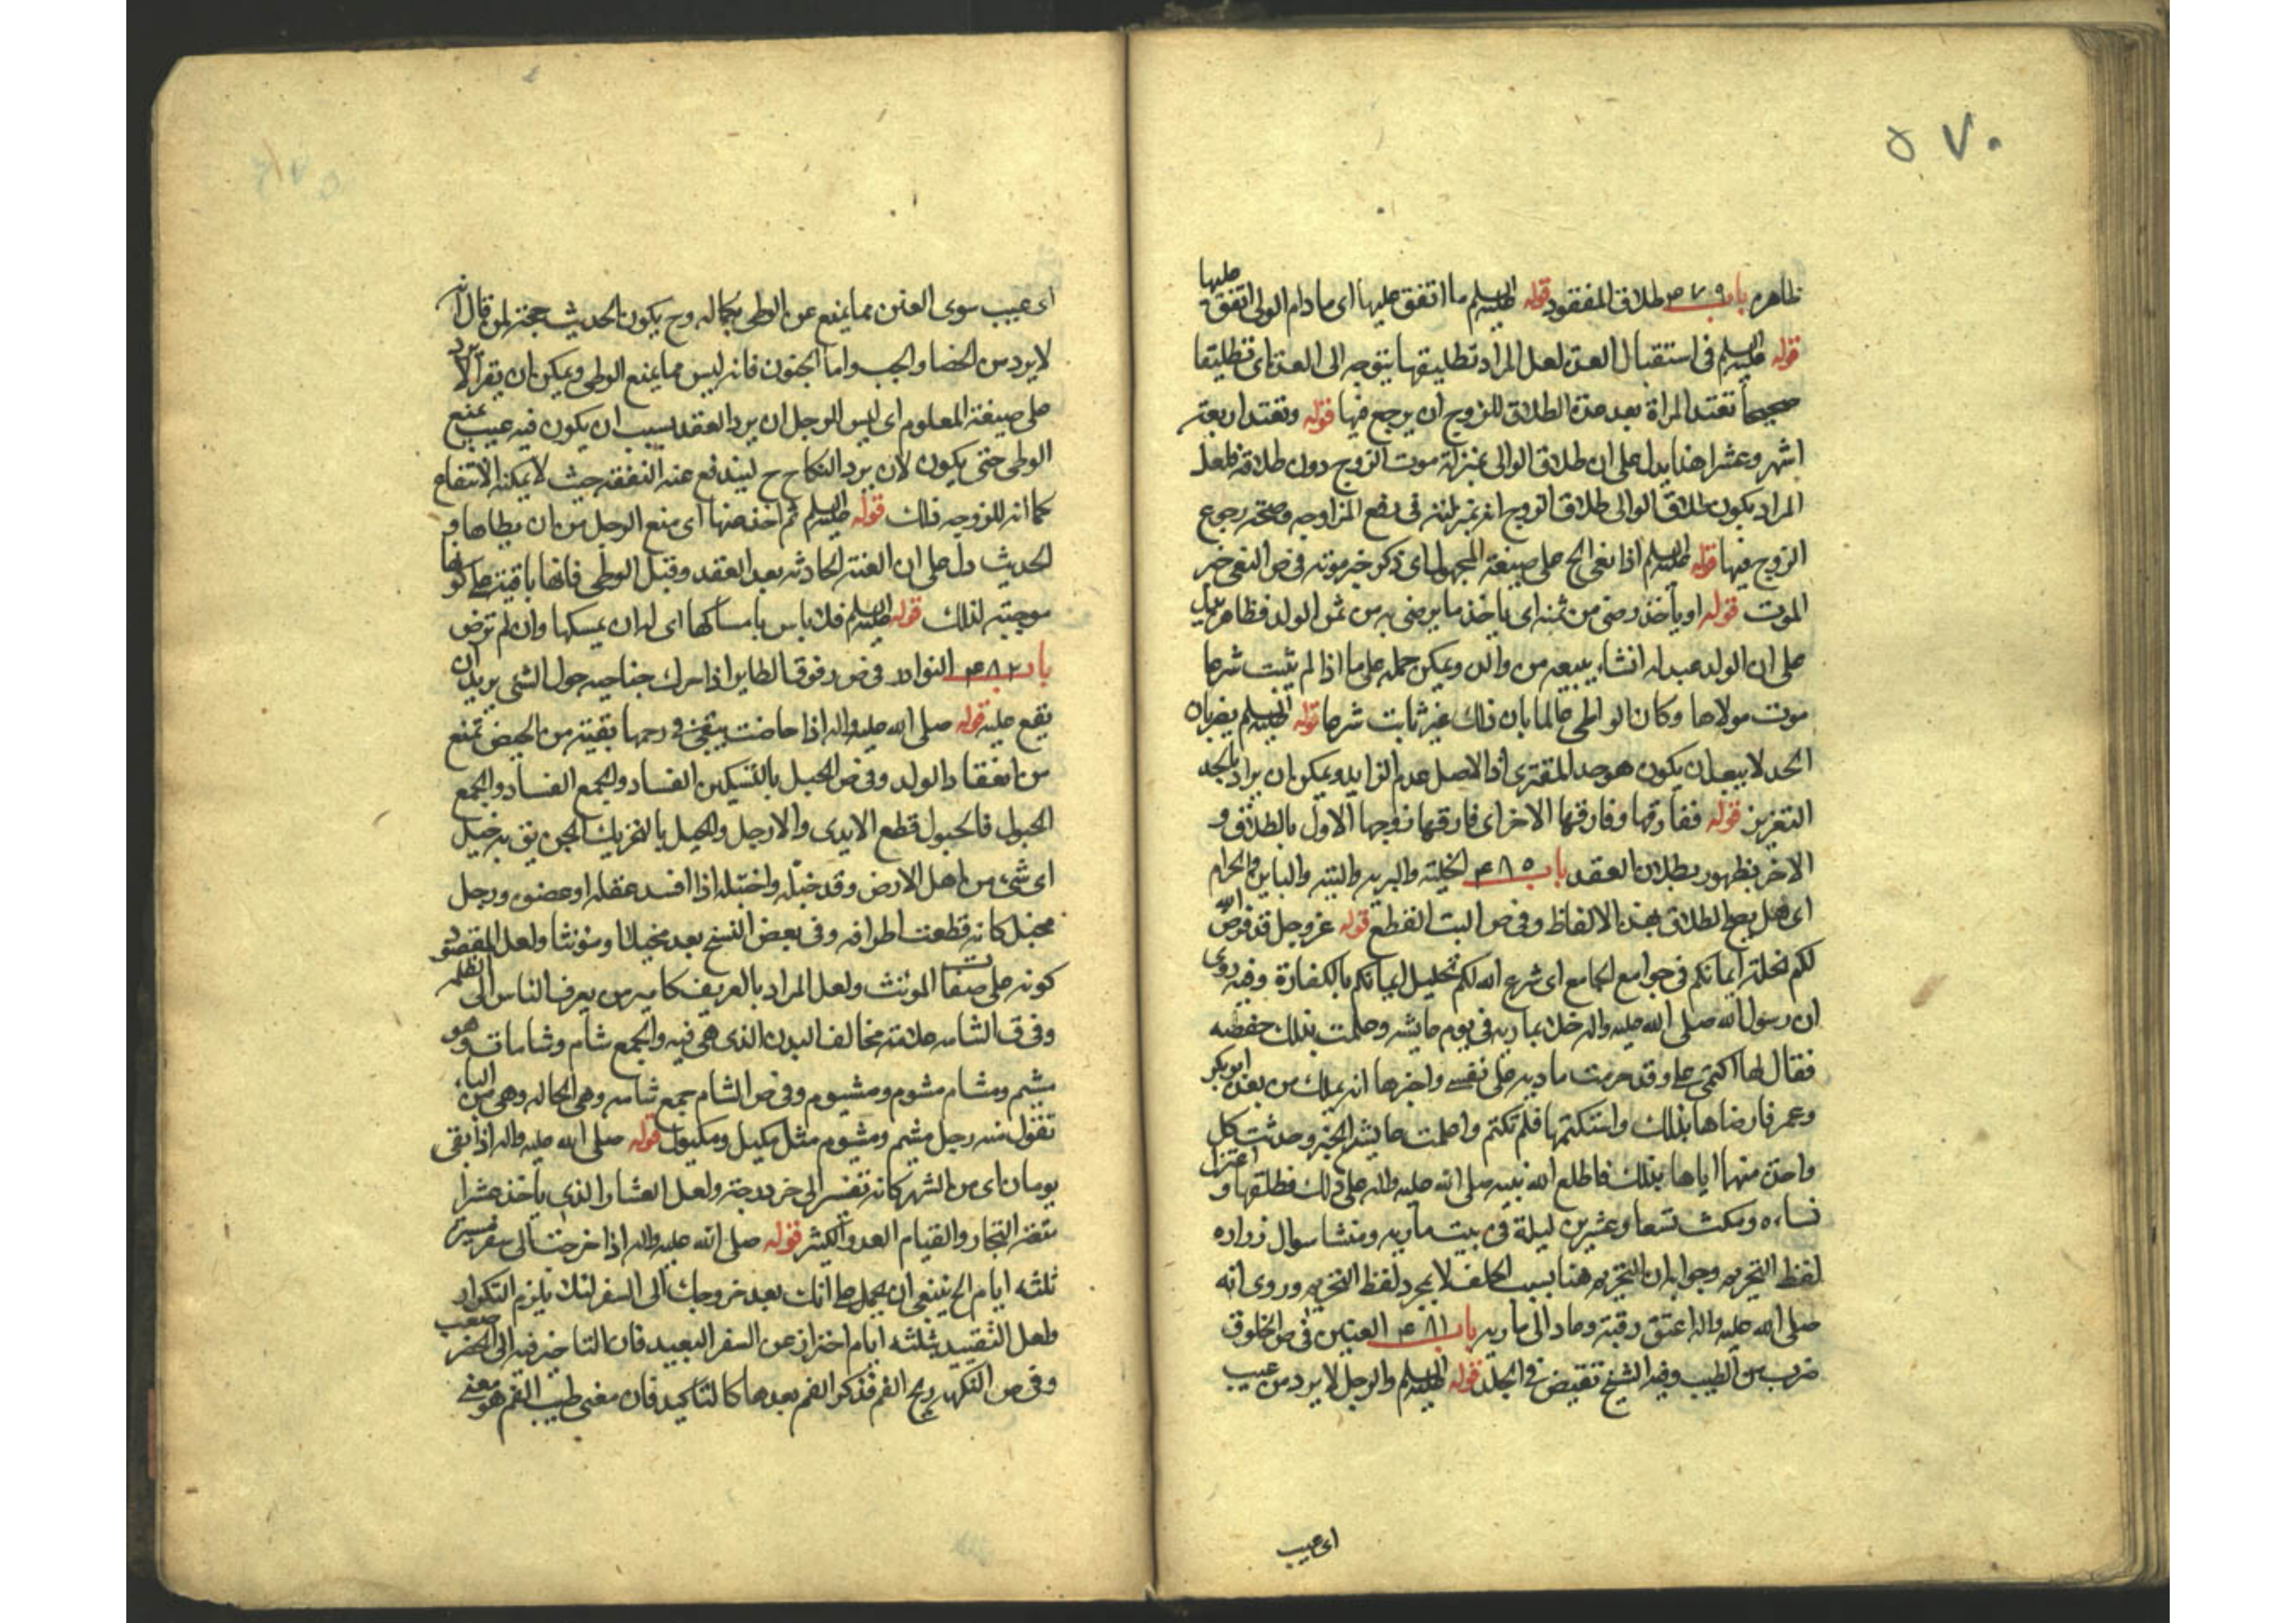 ٥٧٠
ظاهره باب ٤٧٩ طلاق المفقود قوله عليه السلم ما اتفق عليها اى ما دام الولى اتفق عليها
قوله عليه السلم فى استقبال العدة لعل المراد تطليقها يتوجه الى العدة اى تطليقا
صحيحا تعتد المراة بعد هذه الطلاق للزوج ان يرجع فيها قوله وتعتد اربعة
اشهر وعشرا هذا يدل على ان طلاق الوالى بمنزلة موت الزوج دون طلاقه فلعل
المراد بكون طلاق الوالى طلاق الزوج انه بمنزلته فى رفع المزاوجه وصحة رجوع
الزوج فيها قوله عليه السلم اذا نعى الخ على صيغة المجهول اى ذكر خبر موته فى ص النعى خبر
الموت قوله او يأخذ رضى من ثمنه اى ياخذ ما يرضى به من ثمن الولد فظاهره يدل
على ان الولد عبد له انشاء يبيعه من والده ويمكن حمله على ما اذا لم يثبت شرعا
موت مولاها وكان الواطى عالما بان ذلك غير ثابت شرعا قوله عليه السلم يضربان
الحد لا يبعد ان يكون هو حد المفترى اذا الاصل عدم الزايد ويمكن ان يراد بالحد
التعزير قوله ففارقها وفارقها الاخر اى فارقها زوجها الاول بالطلاق و
الاخر بظهور بطلان العقد باب ٤٨٥ الخلية والبرية والبتة والباين والحرام
اى هل يصح الطلاق بهذه الالفاظ وفى ص البت القطع قوله عز وجل قد فرض الله
لكم تحلة ايمانكم فى جوامع الجامع اى شرع الله لكم تحليل ايمانكم بالكفارة وفيه روى
ان رسول الله صلى الله عليه واله خلا بمارية فى يوم عايشه وعلمت بذلك حفصه
فقال لها اكتمى على وقد حرمت مارية على نفسى واخبرها انه يملك من بعده ابو بكر
وعمر فارضاها بذلك واستكتمها فلم تكتم واعلمت عايشه الخبر وحدثت كل
واحدة منهما اباها بذلك فاطلع الله نبيه صلى الله عليه واله على ذلك فطلقها و اعتزل
نساءه ومكث تسعا وعشرين ليلة فى بيت مارية ومنشا سوال زراره
لفظ التحريم وجوابه ان التحريم هنا بسبب الحلف لا بمجرد لفظ التحريم وروى انه
صلى الله عليه واله اعتق رقبة وعاد الى مارية باب ٤٨١ العنين فى ص الخلوق
ضرب من الطيب وفيه الشيخ تقبض فى الجلد قوله عليه السلم والرجل لا يرد من عيب
اى عيب
اى عيب سوى العنن مما يمنع عن الوطى بكماله وح يكون الحديث حجة لمن قال انه
لا يرد من الخصا والجب واما الجنون فانه ليس مما يمنع الوطى ويمكن ان يقرأ لا يرد
على صيغة المعلوم اى ليس الرجل ان يرد العقد بسبب ان يكون فيه عيب يمنع
الوطى حتى يكون لان يرد النكاح ح ليندفع عنه النفقة حيث لا يمكنه الانتفاع
كما انه للزوجه ذلك قوله عليه السلم ثم اخذ عنها اى منع الرجل من ان يطاها و
الحديث دل على ان العنة الحادثه بعد العقد وقبل الوطى فانها باقية على كونها
موجبة لذلك قوله عليه السلم فلا باس بامساكها اى له ان يمسكها وان لم ترض
باب ٤٨٢ النوادر فى ص رفرف الطاير اذا حرك جناحيه حول الشى يريد ان
يقع عليه قوله صلى الله عليه واله اذا حاضت يبقى فى رحمها بقية من الحيض تمنع
من انعقاد الولد وفى ص الخبل بالتسكين الفساد والجمع الفساد والجمع
الخبول فالخبول قطع الايدى والارجل والخبل بالتحريك الجن يق به خبل
اى شىء من اهل الارض وقد خبله واختبله اذا افسد عقله او عضوه ورجل
مخبل كانه قطعت اطرافه وفى بعض النسخ بعد مخبلا ومؤنثا ولعل المقصود
كونه على صفات المونث ولعل المراد بالعريف كامير من يعرف الناس الى الظلمه
وفى ق الشامه علامة مخالف البدن الذى هى فيه والجمع شام وشامات وهو
مشيم ومشام مشوم ومشيوم وفى ص الشام جمع شامه وهى الخاله وهى من الياء
تقول منه رجل مشيم ومشيوم مثل مكيل ومكيول قوله صلى الله عليه واله اذا بقى
يومان اى من الشهر كانه تفسر الى خر درجة ولعل العشار الذى يأخذ عشرا
متعة التجار والقيام العدو الكثر قوله صلى الله عليه واله اذا خرجت الى سفر مسيرة
ثلثه ايام الخ ينبغى ان يحمل على انك بعد خروجك الى السفر لئلا يلزم التكرار
ولعل التقييد بثلثه ايام احتراز عن السفر البعيد فان التاخير فيه الى الحضر صعب
وفى ص النكهة ريح الفم فذكر الفم بعدها كالتاكيد فان معنى طيب الفم هو معنى